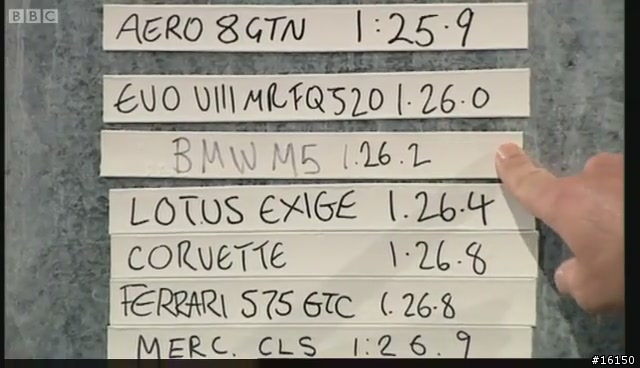 BBC
AERO 8 GTN 1:25.9
EVO VIII MR FQ320 1.26.0
BMW M5 1.26.2
LOTUS EXIGE 1.26.4
CORVETTE 1.26.8
FERRARI 575 GTC 1.26.8
MERC. CLS 1:26.9
#16150